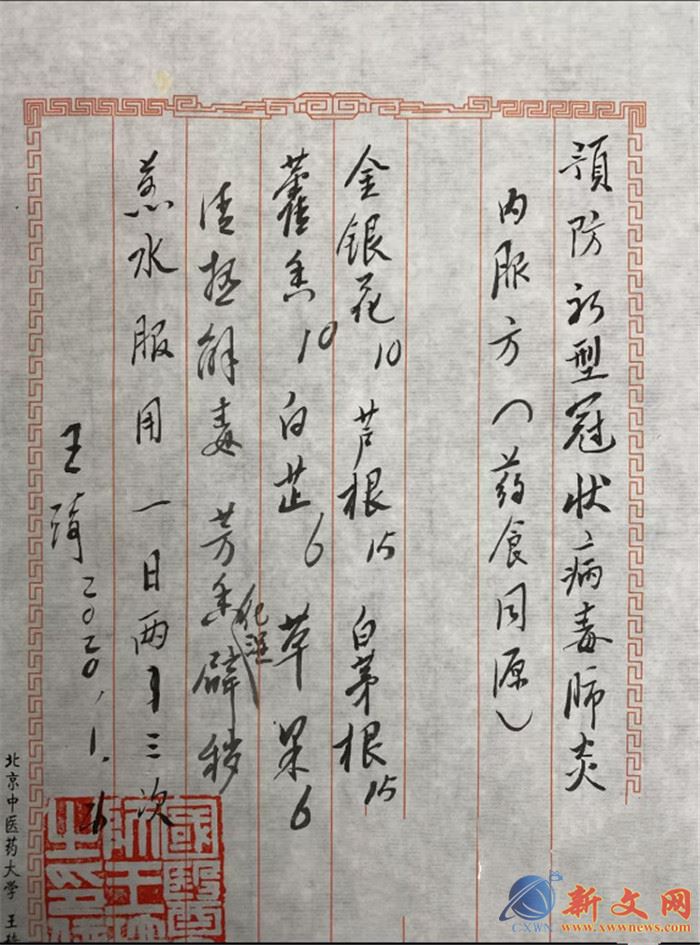 预防新型冠状病毒肺炎
内服方（药食同源）
金银花10 芦根15 白茅根15
藿香10 白芷6 草果6
清瘟解毒 芳香化湿辟秽
煎水服用 一日两至三次
王琦 2020.1.
北京中医药大学 王琦
國醫
新文网
CXWN www.xwwnews.com